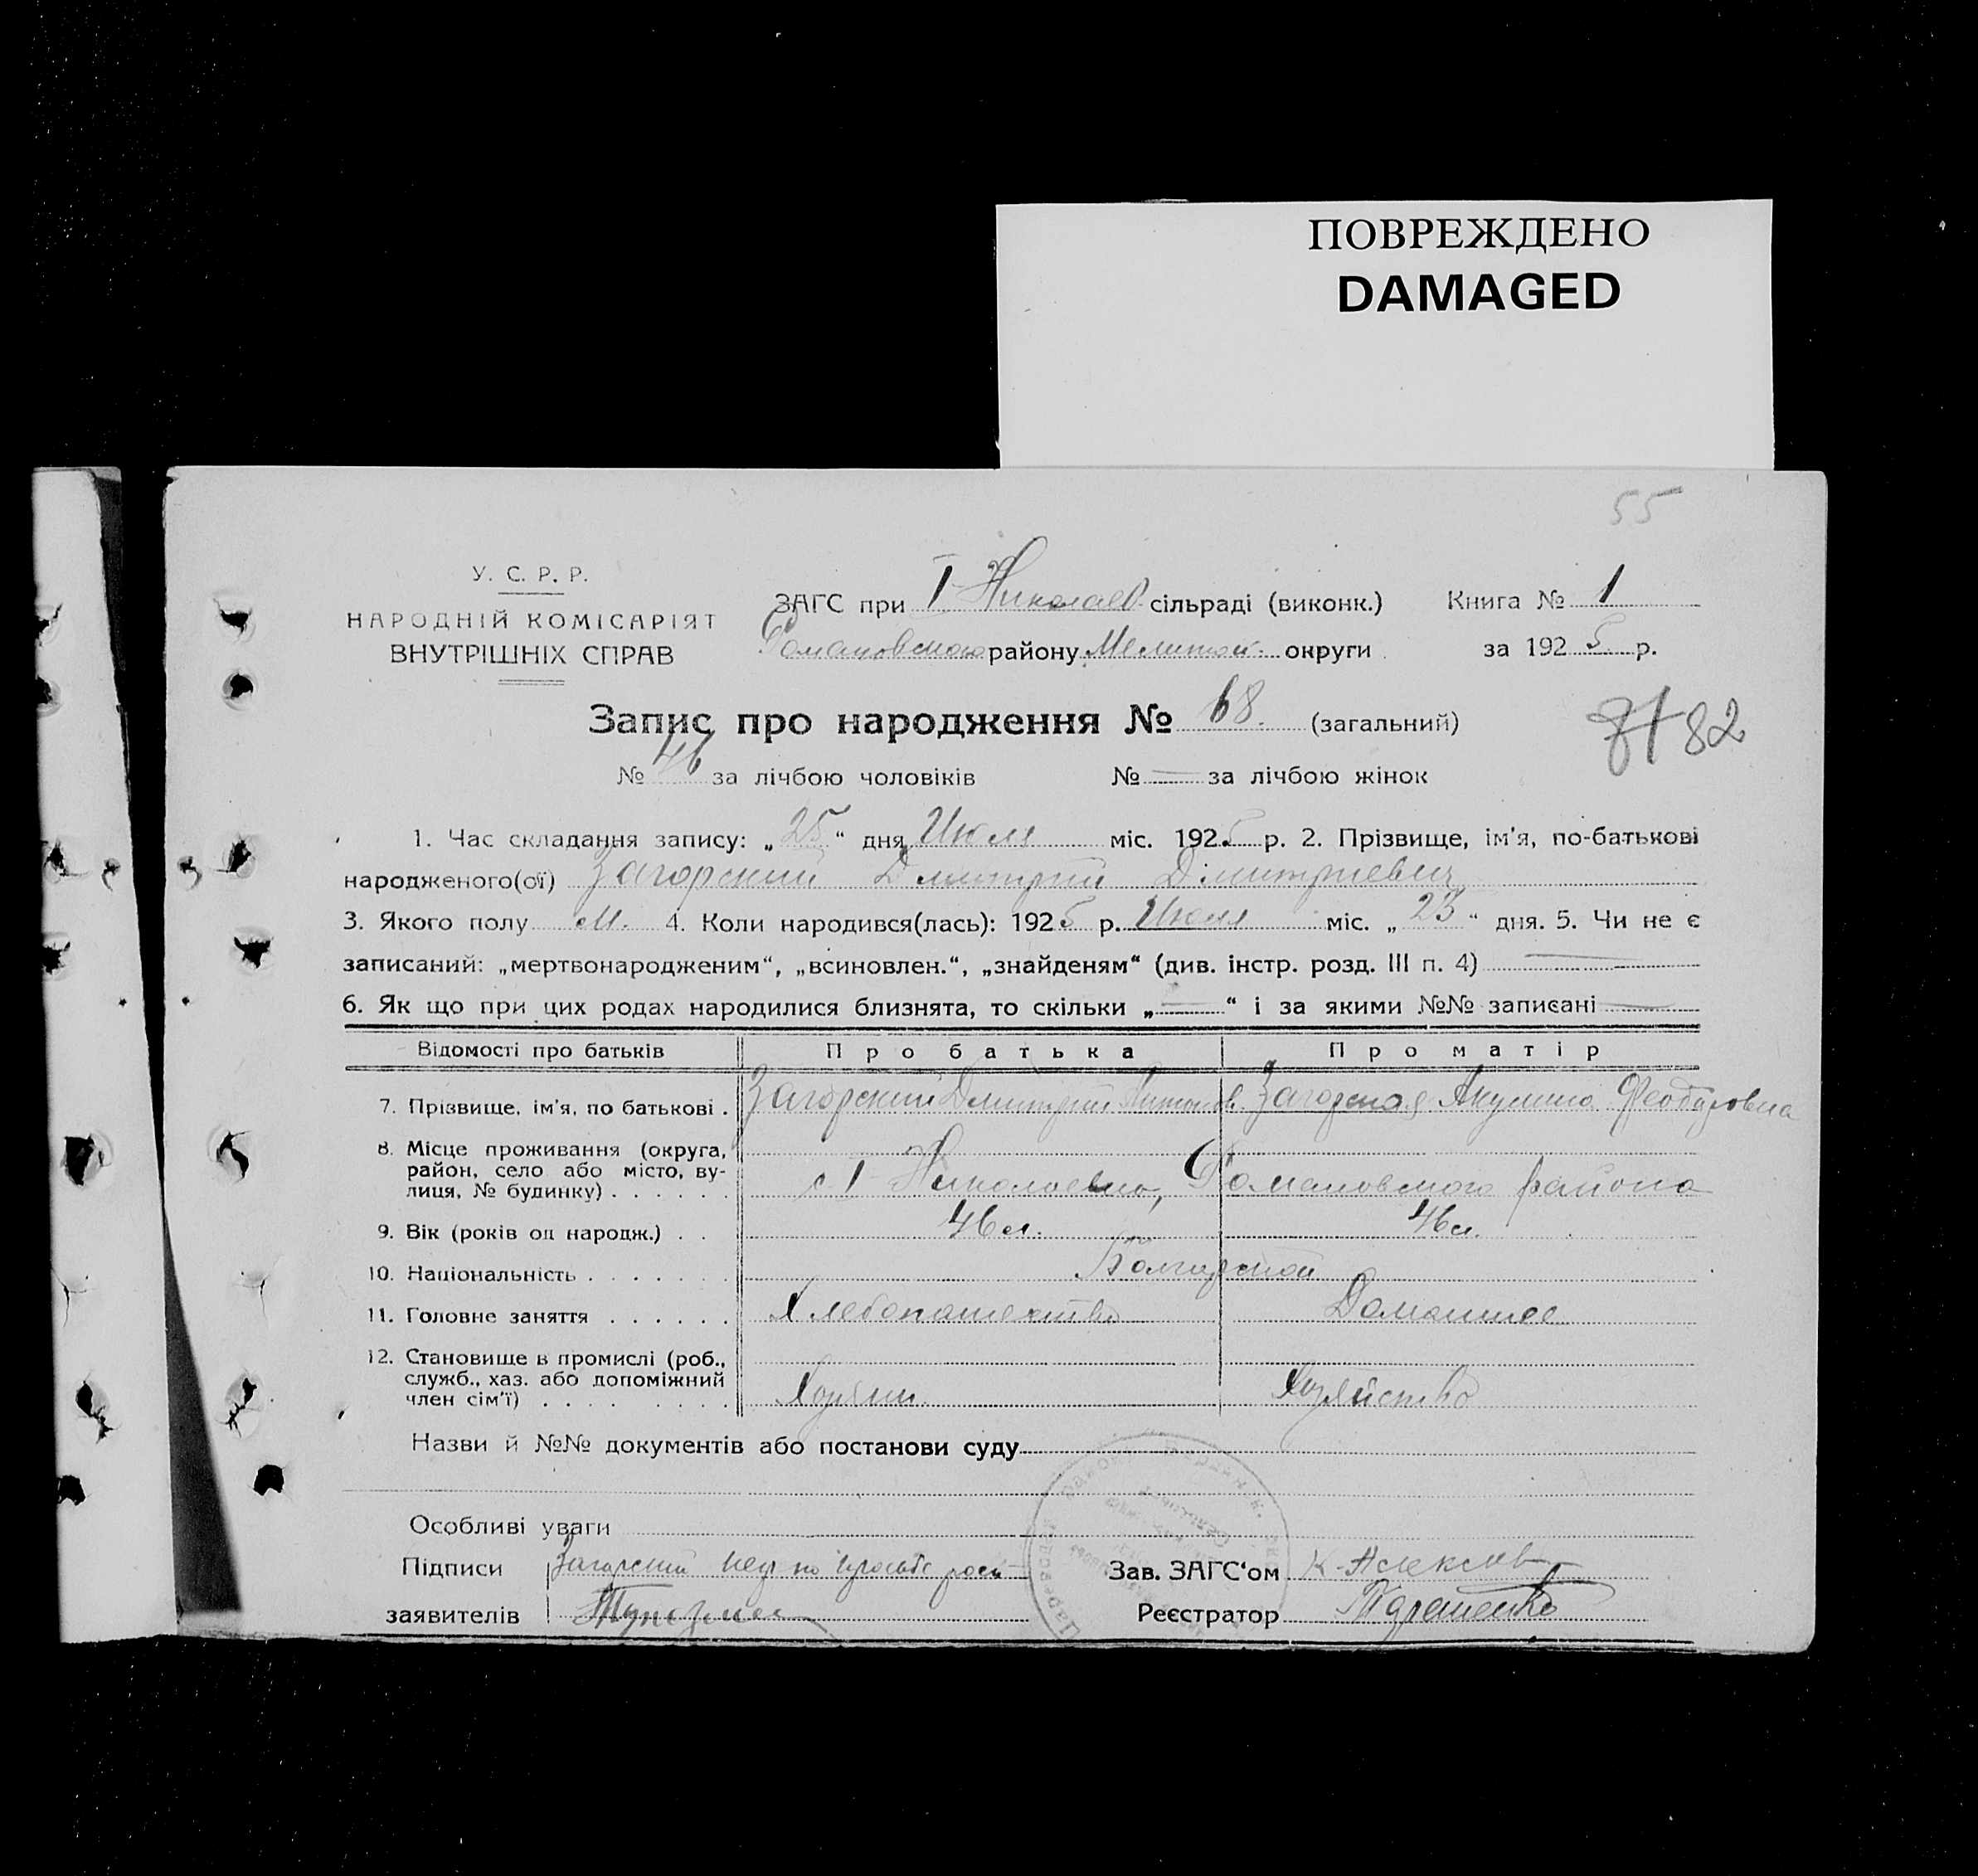 ПОВРЕЖДЕНО
DAMAGED
55
У. С. Р. Р.
НАРОДНІЙ КОМІСАРІЯТ
ВНУТРІШНІХ СПРАВ
ЗАГС при I Николаев сільраді (виконк.) Книга № 1
Романовского району Мелитоп. округи за 1925 р.
Запис про народження № 68. (загальний)
82
№ 46 за лічбою чоловіків № — за лічбою жінок
1. Час складання запису: „25“ дня Июля міс. 1925 р. 2. Прізвище, ім'я, по-батькові
народженого(ої) Загорский Дмитрий Дмитриевич
3. Якого полу М. 4. Коли народився(лась): 1925 р. Июля міс. „23“ дня. 5. Чи не є
записаний: „мертвонародженим“, „всиновлен.“, „знайденям“ (див. інстр. розд. III п. 4) —
6. Як що при цих родах народилися близнята, то скільки „—“ і за якими №№ записані —
Відомості про батьків Про батька Про матір
7. Прізвище, ім'я, по батькові . Загорский Дмитрий Загорская Акулина Феодоровна
8. Місце проживання (округа,
район, село або місто, ву-
лиця, № будинку) . . . . . . с I Николаевка, Романовского района
9. Вік (років од народж.) . . 46 л. 46 л.
10. Національність . . . . . . . Болгарской
11. Головне заняття . . . . . . Хлебопашество Домашнее
12. Становище в промислі (роб.,
служб., хаз. або допоміжний
член сім'ї) . . . . . . . . Хозяин Хозяйство
Назви й №№ документів або постанови суду
Особливі уваги
Підписи Загорский негр по просьбе росп Зав. ЗАГС'ом
заявителів Реєстратор Тараненко